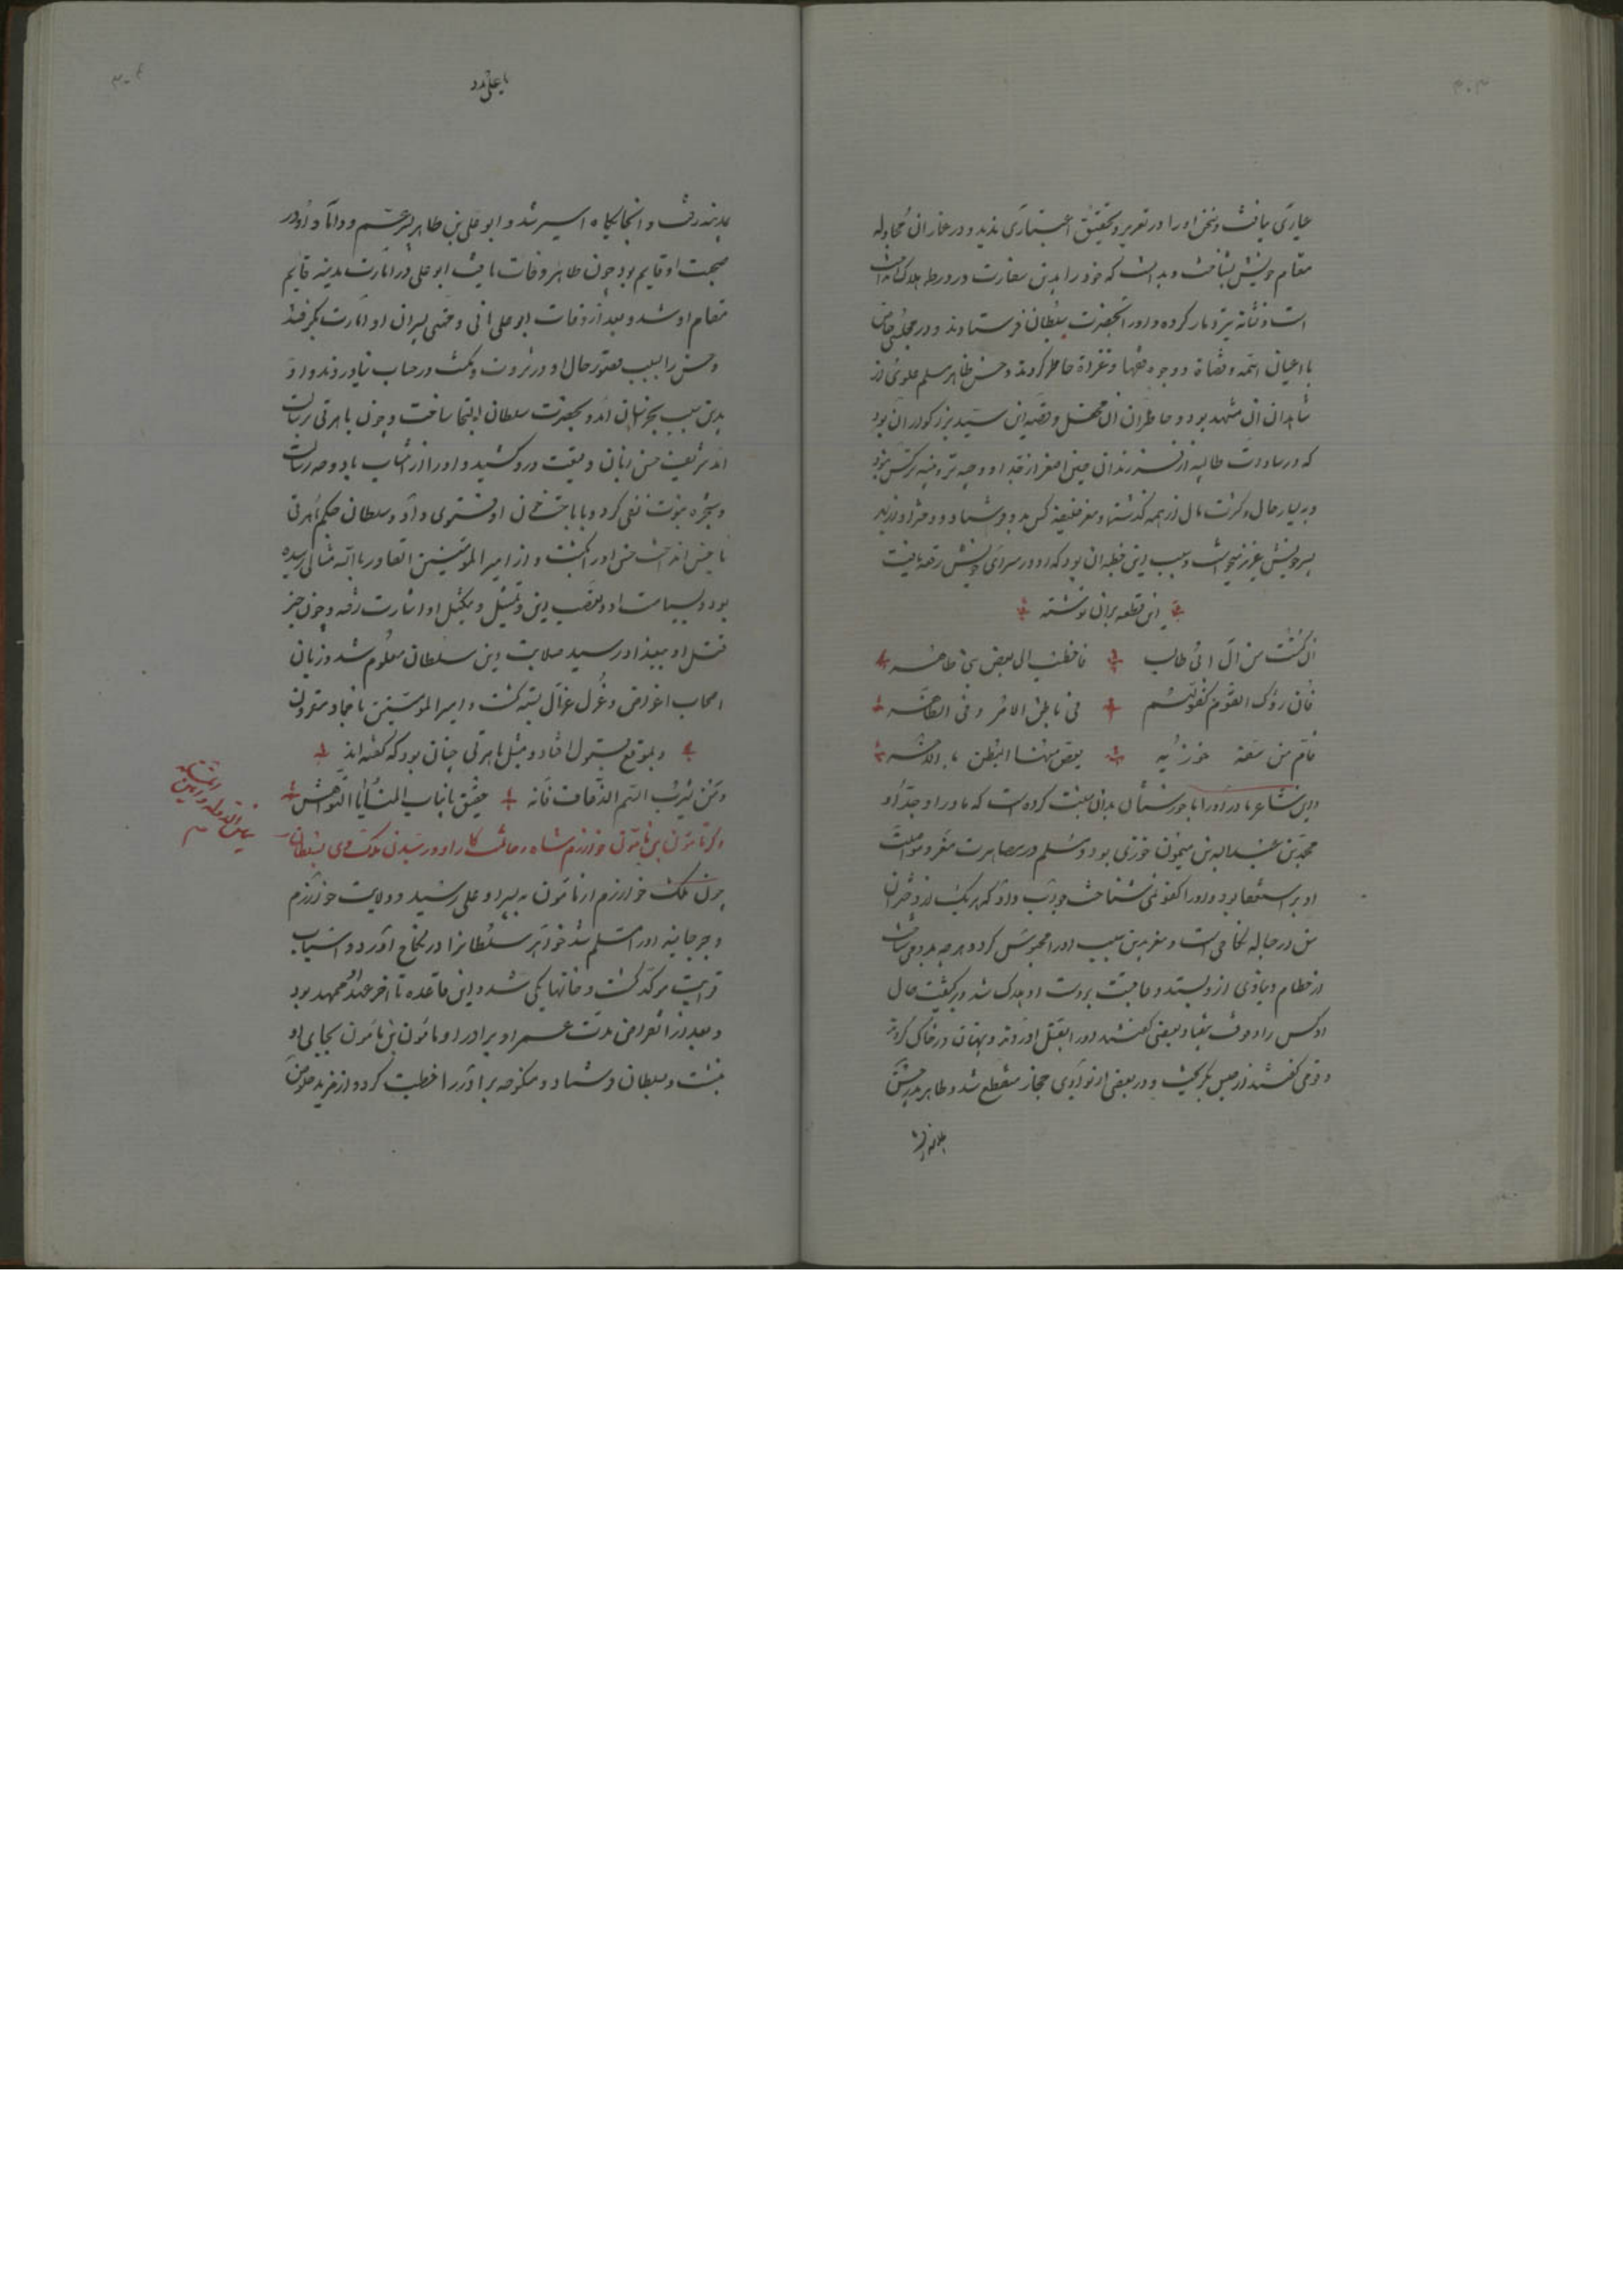 عاری یافت و سخن او را در تقریر و تحقیق اعتباری ندید و در غمار ان مجادله
مقام خویش بشناخت و بدانست که خود را بدین سفارت در ورطه هلاک انداخت
است و نشانه تیر دمار کرده و او را بحضرت سلطان فرستادند و در مجلسی خاص
با اعیان ائمه و قضاة و وجوه فقها و غزاة حاضر کردند و حسن طاهر مسلم علوی از
شاهدان ان مشهد بود و حاضران ان محفل و قصه این سید بزرگوار ان بود
که در سادات طالبیه از فرزندان حسین اصغر از جد او وجیه تر و منبه تر کس نبود
و بیسار حال و کثرت مال از همه گذشته و معز خلیفه کس بدو فرستاد و دختر او از بهر
پسر خویش عزیز میخواست و سبب این خطبه ان بود که او در سرای خویش رقعه یافت
این قطعه بران نوشته
ان کنت من ال ابی طالب فاخطب الی بعض بنی طاهر
فان رآک القوم کفوا لهم فی باطن الامر و فی الظاهر
فام من سعة خوزیه یعض منها البظر بالاخر
و این شاعر مادر او را بخوزستان بدان نسبت کرده است که مادر او جد او
محمد بن عبدالله بن میمون خوزی بود و مسلم در مصاهرت معز و مواصلت
او بر استعفا بود و او را کفو نمی شناخت جواب داد که هر یک از دختران
من در حباله نکاحی است و معز بدین سبب او را محبوس کرد و هر چه بدو می شناخت
از حطام دنیاوی ازو بستد و عاقبت بردست او هلاک شد و بر کیفیت حال
او کس را وقوف نیفتاد و بعضی گفتند او را بقتل اورد و پنهان در خاک کرد
و قومی گفتند از حبس بگریخت و در بعضی از بوادی حجاز منقطع شد و طاهر پدر حسن
بمدینه رفت و انجایگاه امیر شد و ابو علی بن طاهر پسر عم و داماد او در
صحبت او قایم بود چون طاهر وفات یافت ابو علی در امارت مدینه قایم
مقام او شد و بعد از وفات ابو علی هانی و مهنی پسران او امارت بگرفتند
و حسن را بسبب قصور حال او در ثروت و مکنت در حساب نیاوردند و او
بدین سبب بخراسان آمد و بحضرت سلطان التجا ساخت و چون تاهرتی برسالت
آمد شریف حسن زبان وقیعت درو کشید و او را از انتساب با دوحه رسالت
و شجره نبوت نفی کرد و باباحت خون او فتوی داد و سلطان حکم تاهرتی
با حسن انداخت حسن او را بکشت و از امیر المومنین القادر بالله مثالی رسیده
بود و بسیاست او و تعصب دین و تمثیل و تنکیل او اشارت رفته و چون خبر
قتل او ببغداد رسید صلابت دین سلطان معلوم شد و زبان
اصحاب اغراض و عذل عذال بسته گشت و امیر المومنین باحماد مقرون
و بموقع قبول افتاد و مثل تاهرتی چنان بود که گفته اند
و من یشرب السم الذعاف فانه حقیق بانیاب المنایا النواهش
ذکر مامون بن مامون خوارزم شاه و خاتمت کار او و رسیدن ملک وی بسلطان
یمین الدوله و امین الملة
چون ملک خوارزم از مامون به پسر او علی رسید و ولایت خوارزم
و جرجانیه او را مسلم شد خواهر سلطانرا در نکاح آورد و اسباب
قرابت مؤکد گشت و خانها یکی شد و این قاعده تا اخر عهد او ممهد بود
و بعد از انقراض مدت عمر او برادر او مامون بن مامون بجای او
بنشست و بسلطان فرستاد و منکوحه برادر را خطبت کرد و از مزید خلوص
یا علی مدد
۳۰۳
۳۰۴